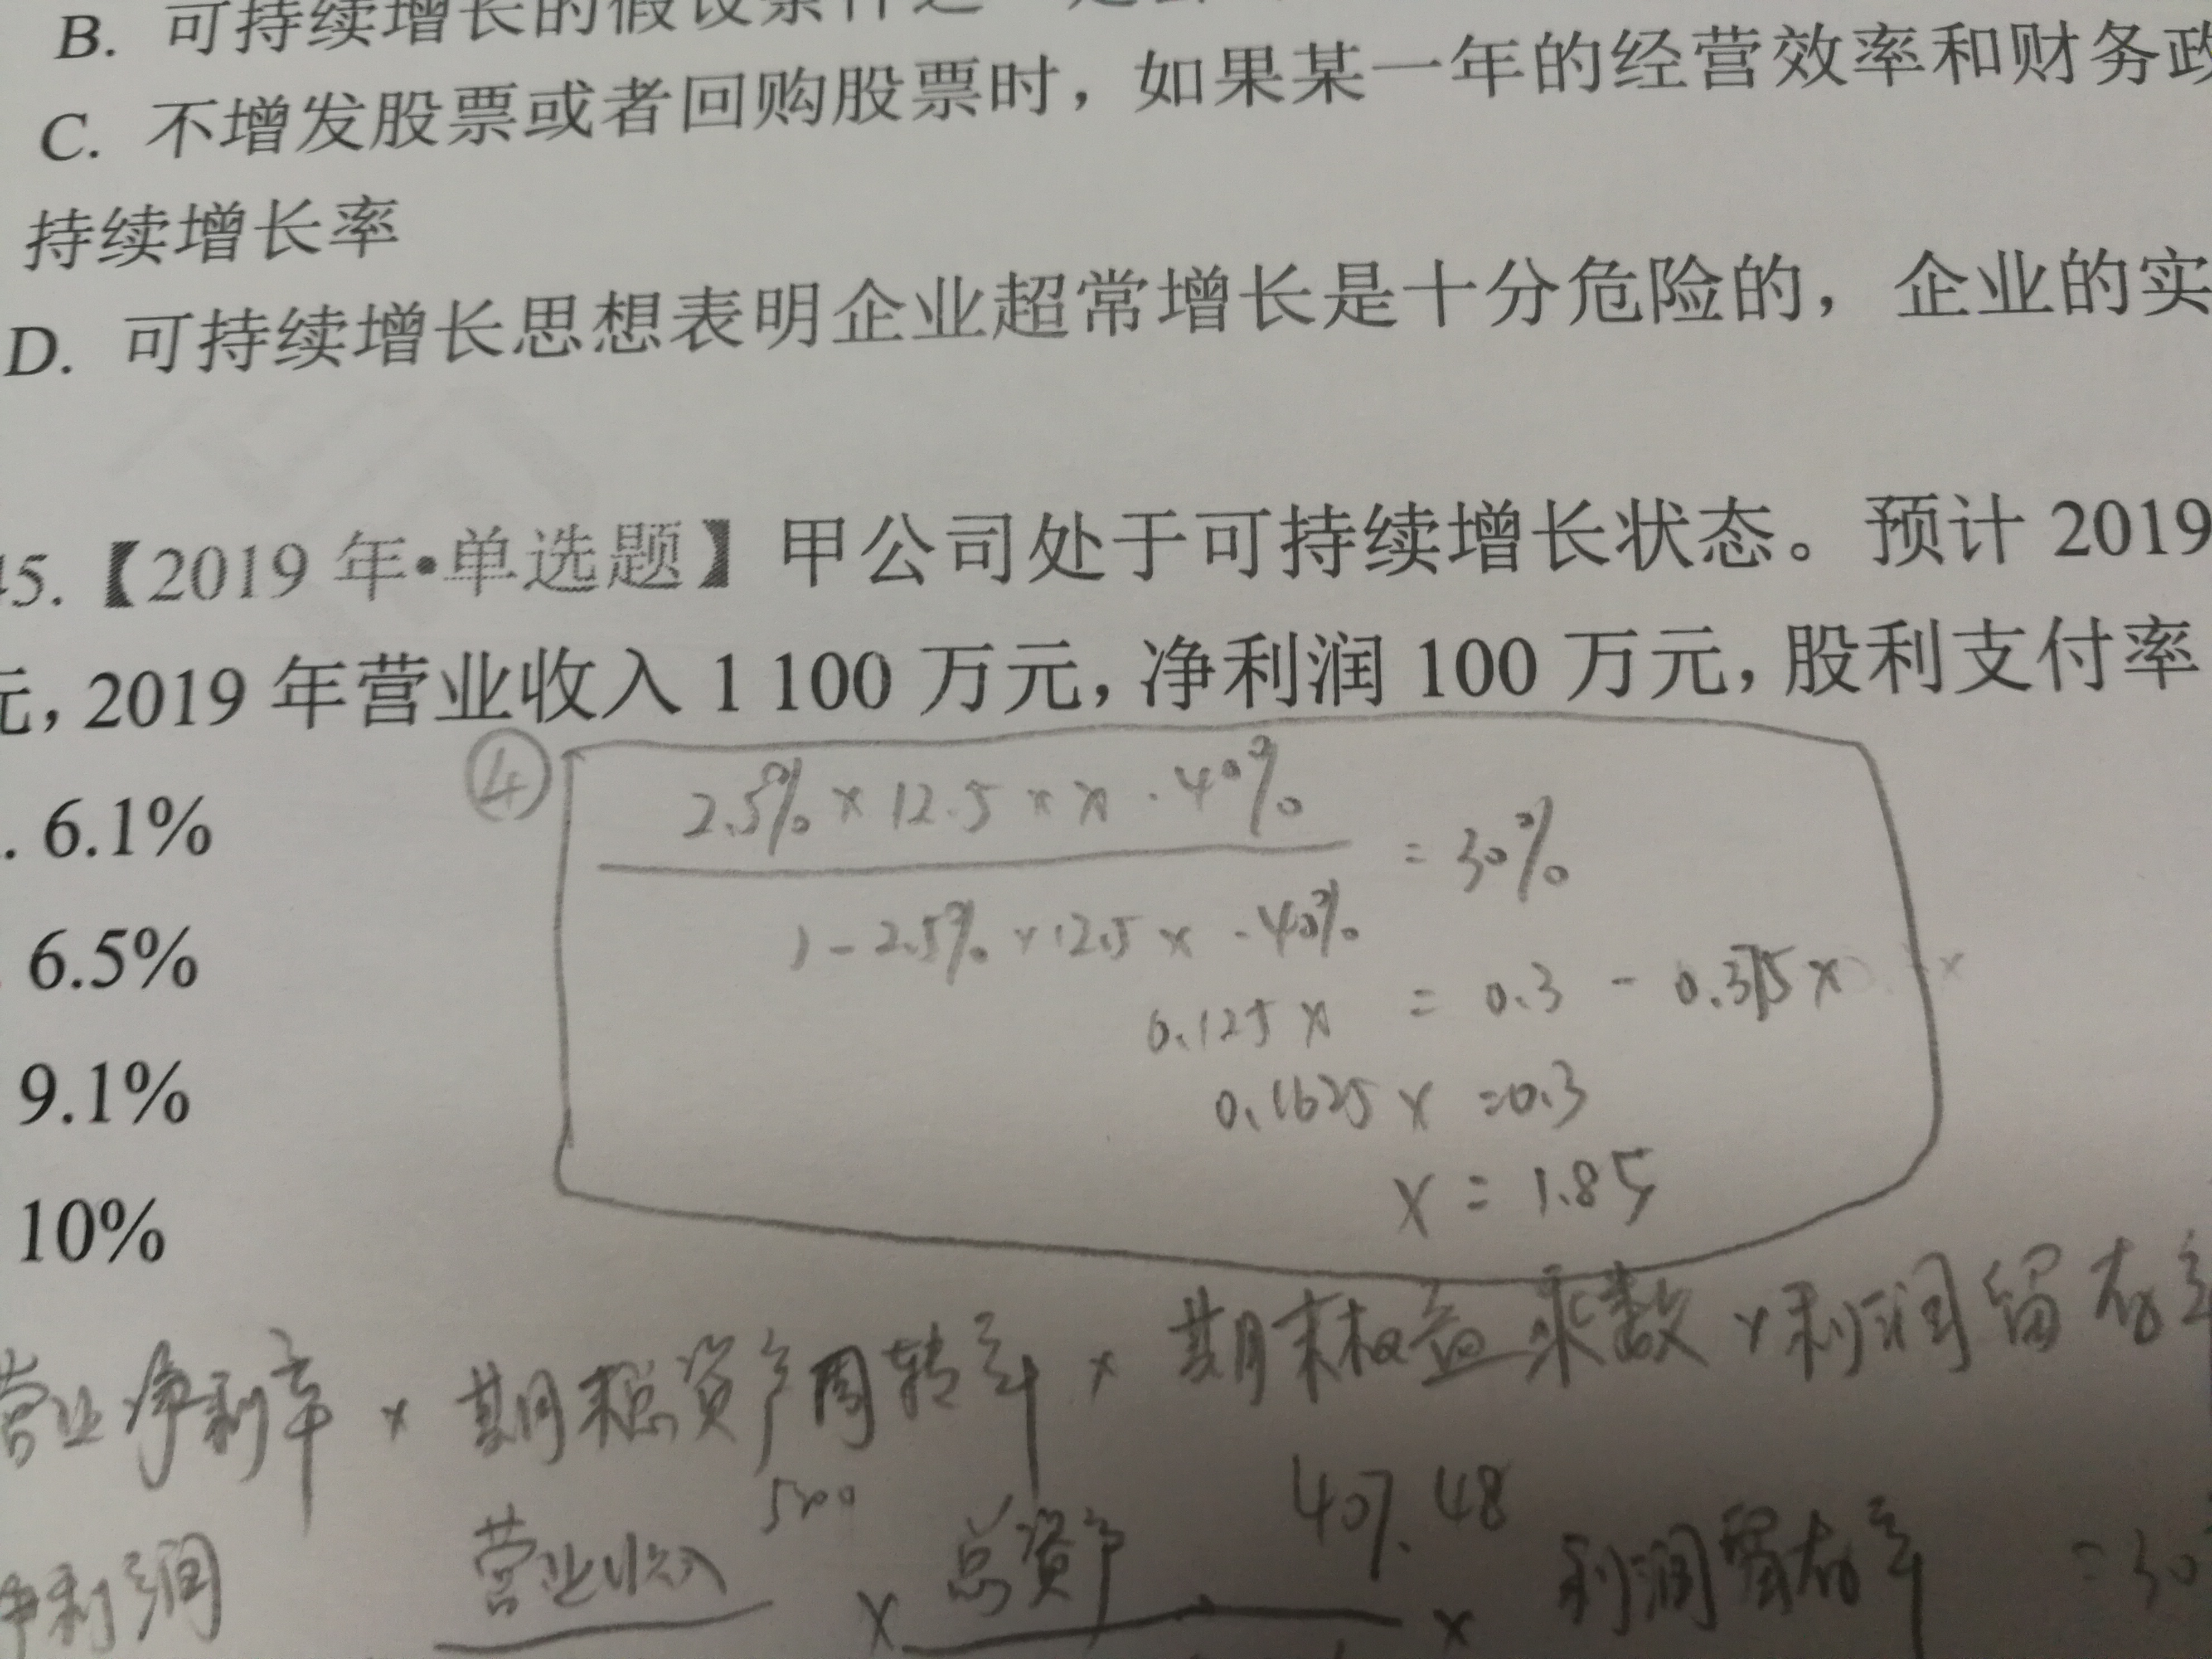 B. 可持续增长的假设条件之一是公
C. 不增发股票或者回购股票时，如果某一年的经营效率和财务政
持续增长率
D. 可持续增长思想表明企业超常增长是十分危险的，企业的实
45.【2019 年•单选题】甲公司处于可持续增长状态。预计 2019
元，2019 年营业收入 1 100 万元，净利润 100 万元，股利支付率
④ 2.5% × 12.5 × x · 40%
= 30%
. 6.1%
1 - 2.5% × 12.5 x · 40%
6.5%
0.125 x = 0.3 - 0.375 x
9.1%
0.1625 x = 0.3
x = 1.85
10%
营业净利率 × 期末总资产周转率 × 期末权益乘数 × 利润留存率
500 40% 48
净利润 营业收入 × 总资产 × 利润留存率 = 30